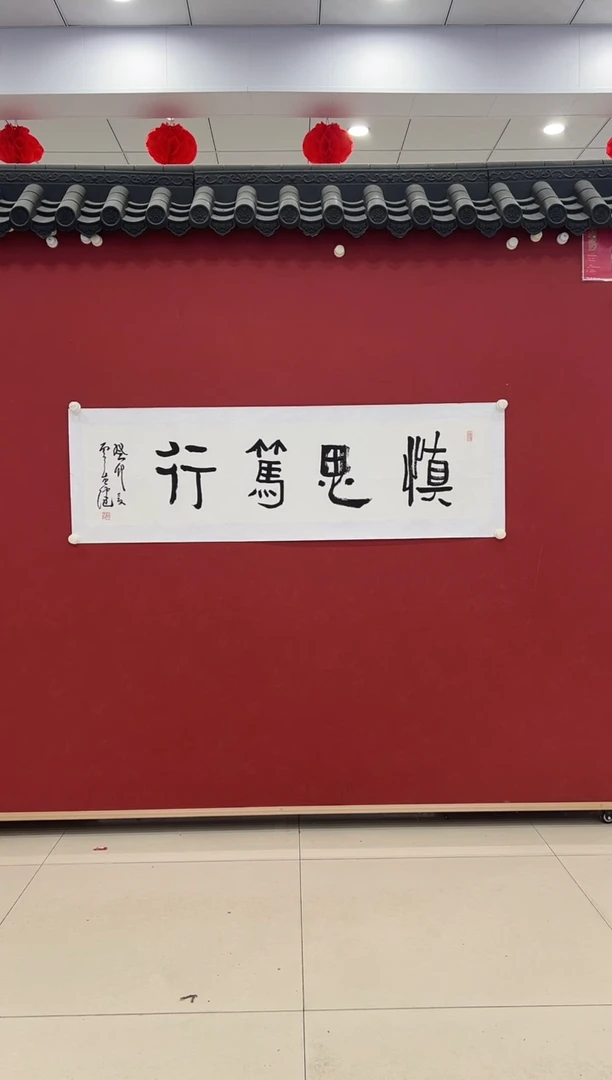 慎思篤行
癸卯夏